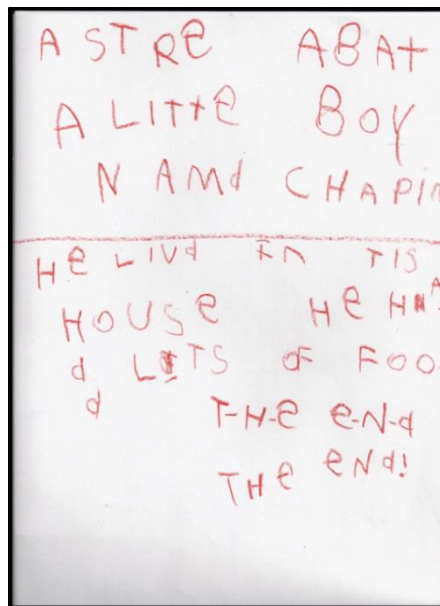 A STRE ABAT
A LITTE BOY
NAMd CHAPIN
He LIVd IN TIS
HOUSe He HA
d LOTS OF FOO
d T-H-e e-N-d
THe eNd!